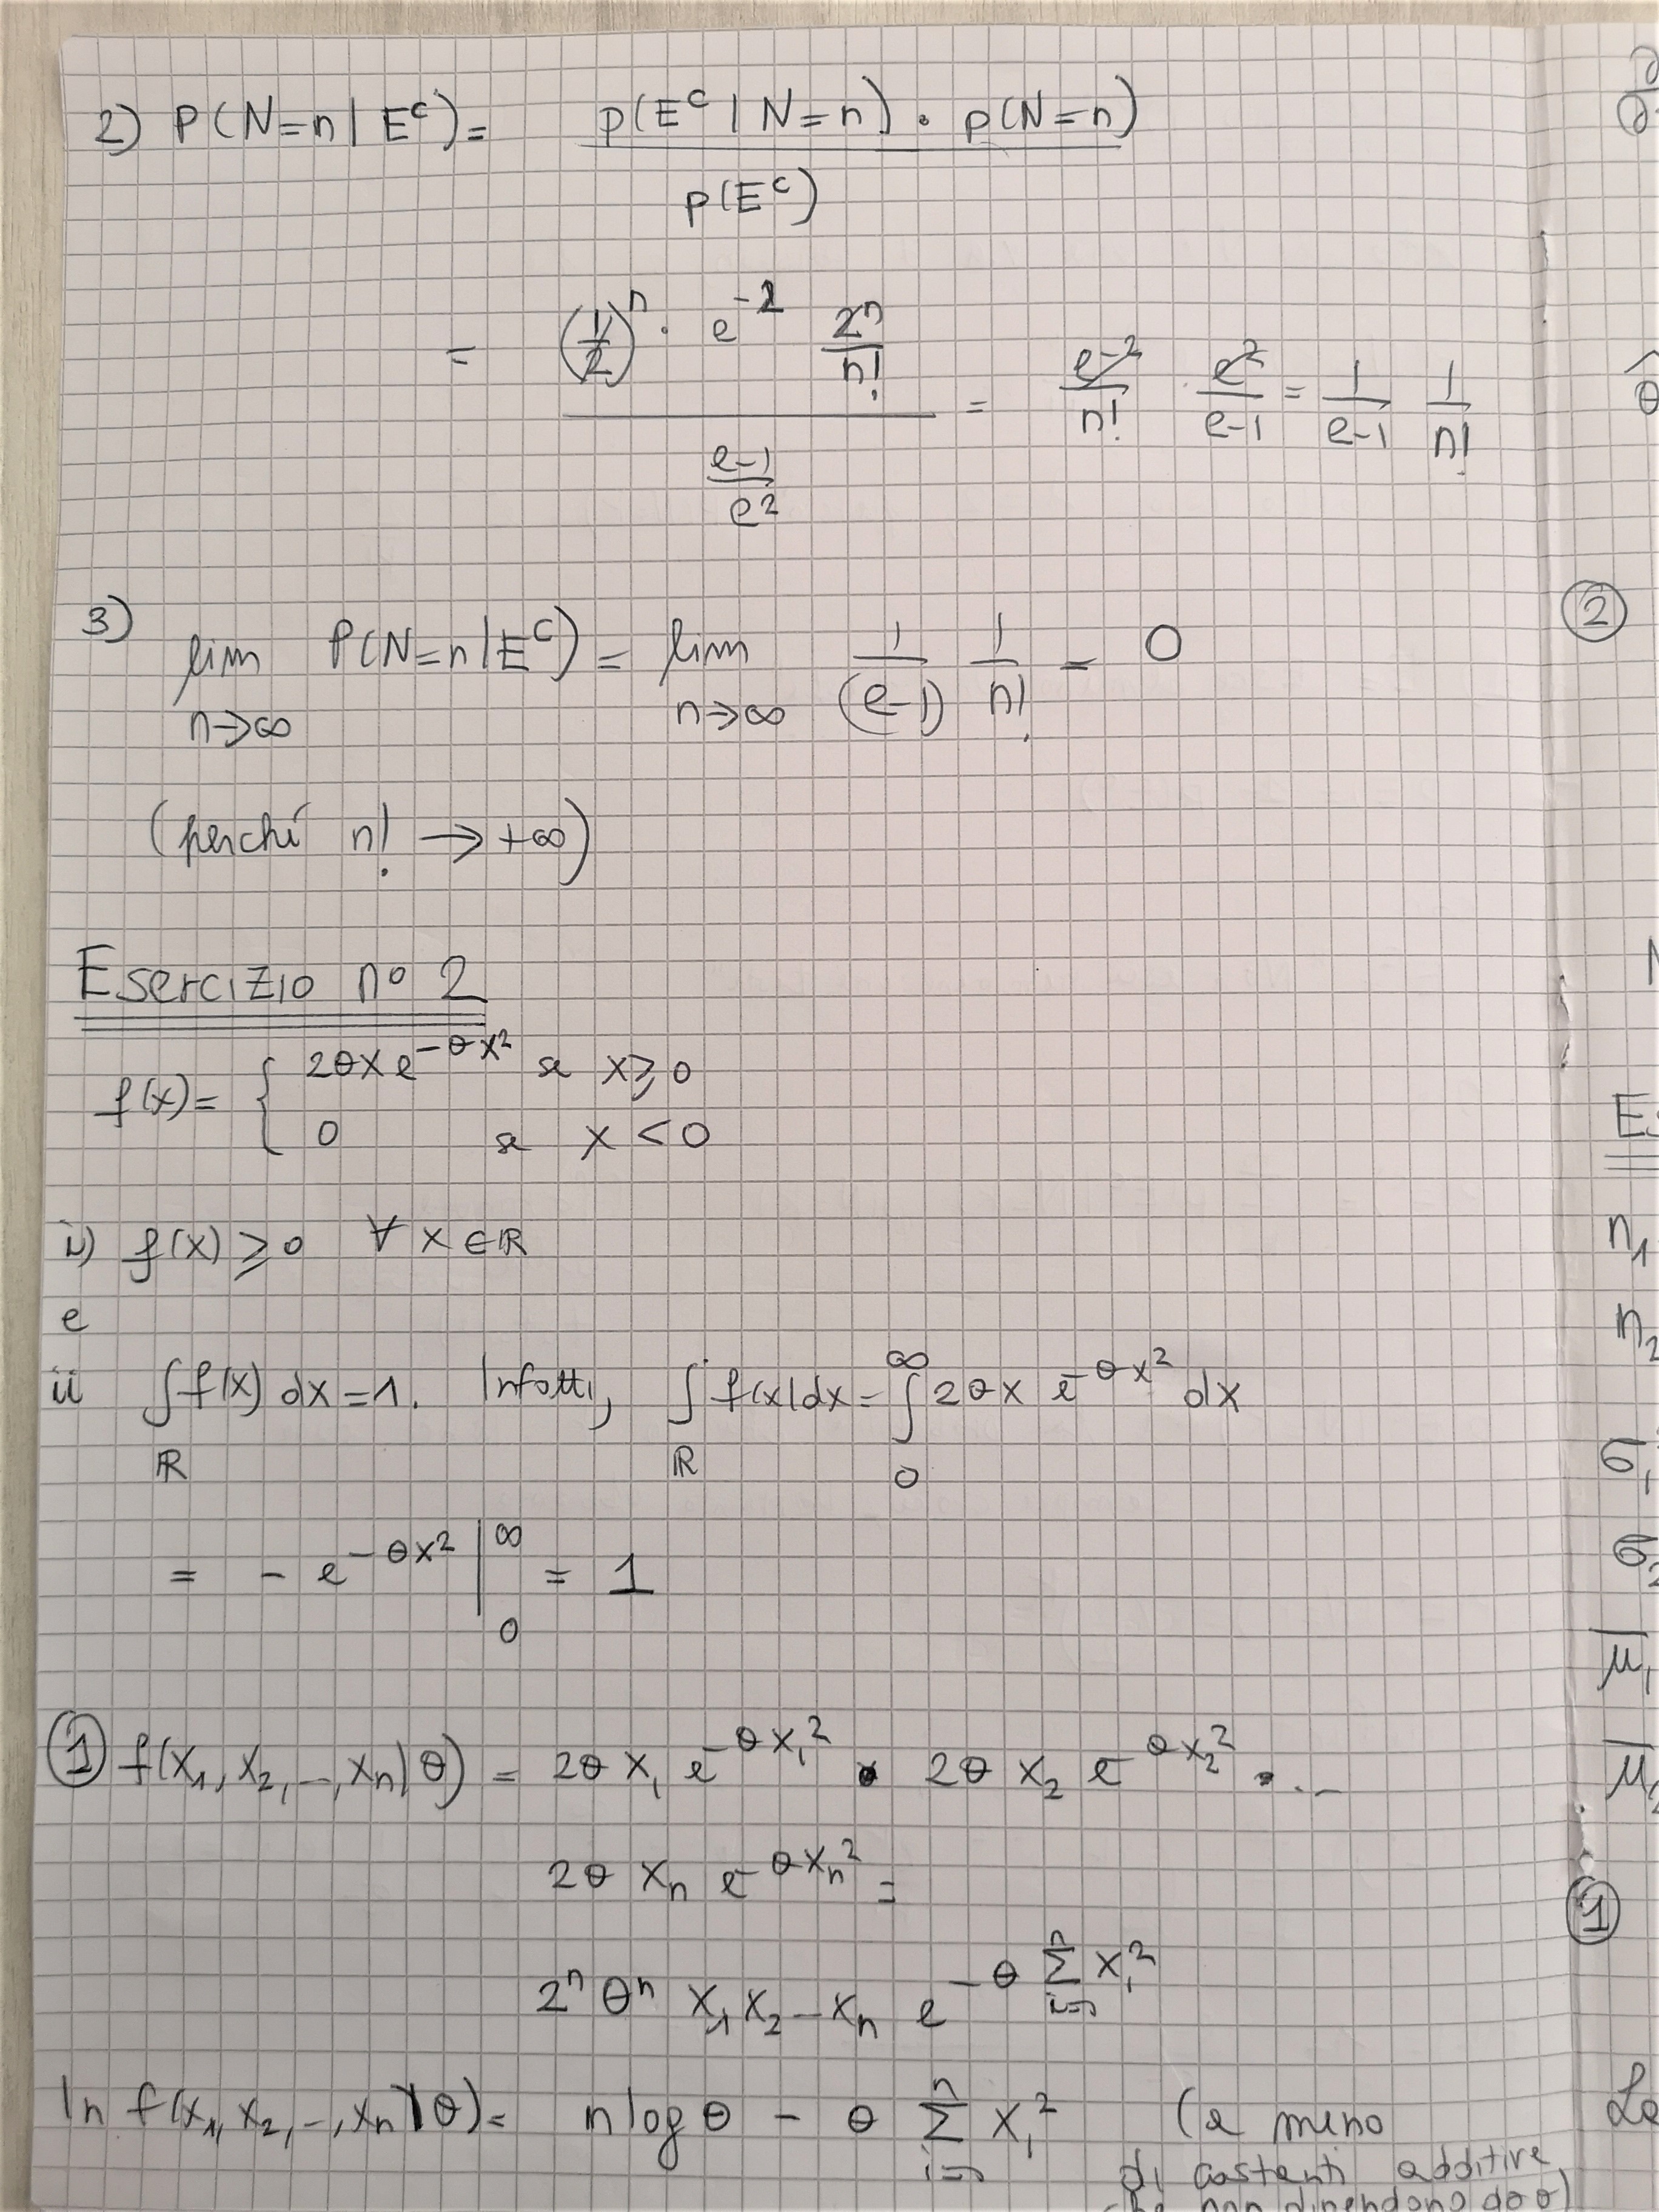 2) P(N=n | E^c) = p(E^c | N=n) · p(N=n) / p(E^c)
= (1/2)^n · e^-2 2^n/n! / (e-1)/e^2 = e^-2/n! · e^2/e-1 = 1/e-1 1/n!
3) lim n→∞ P(N=n|E^c) = lim n→∞ 1/(e-1) 1/n! = 0
(perché n! → +∞)
Esercizio n° 2
f(x) = { 2θx e^-θx² se x ≥ 0
0 se x < 0
i) f(x) ≥ 0 ∀ x ∈ ℝ
e
ii ∫_ℝ f(x) dx = 1. Infatti, ∫_ℝ f(x) dx = ∫_0^∞ 2θx e^-θx² dx
= - e^-θx² |_0^∞ = 1
① f(x₁, x₂, -, xn | θ) = 2θ x₁ e^-θx₁² · 2θ x₂ e^-θx₂² · . --
2θ xn e^-θxn² =
2^n θ^n x₁ x₂ -- xn e^-θ Σ_{i=1}^n xi²
ln f(x₁, x₂, -, xn | θ) = n log θ - θ Σ_{i=1}^n xi² (a meno
di costanti additive
che non dipendono da θ)
②
Es
n₁
n₂
σ₁
σ₂
μ̄₁
μ̄₂
①